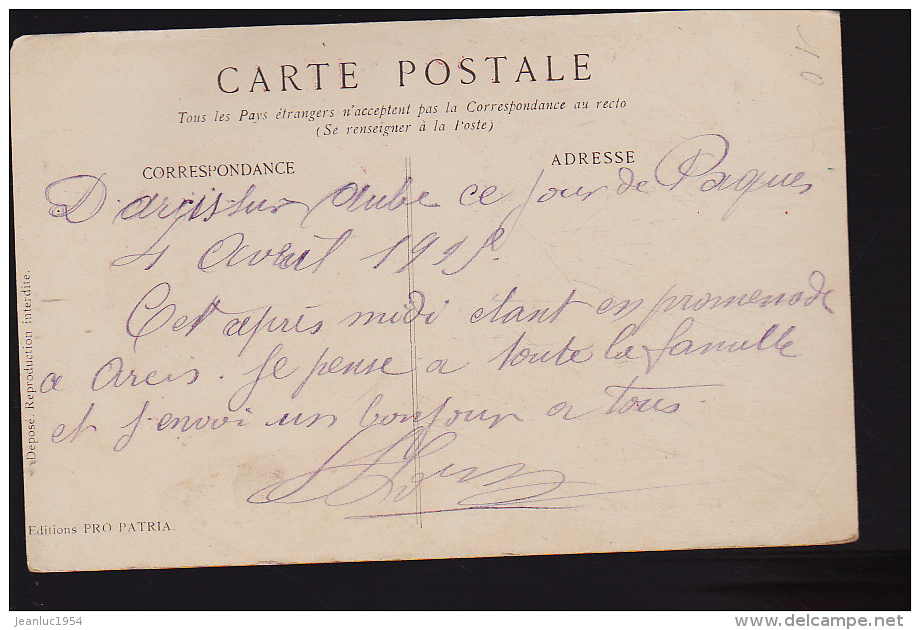 10
CARTE POSTALE
Tous les Pays étrangers n'acceptent pas la Correspondance au recto
(Se renseigner à la Poste)
CORRESPONDANCE
ADRESSE
D'arçis sur Aube ce jour de Paques
4 Avril 1915
Cet après midi étant en promenade
a Arcis. Je pense a toute la famille
et j'envoi un bonjour a tous.
Déposé. Reproduction interdite.
Editions PRO PATRIA.
jeanluc1954
www.delcampe.net